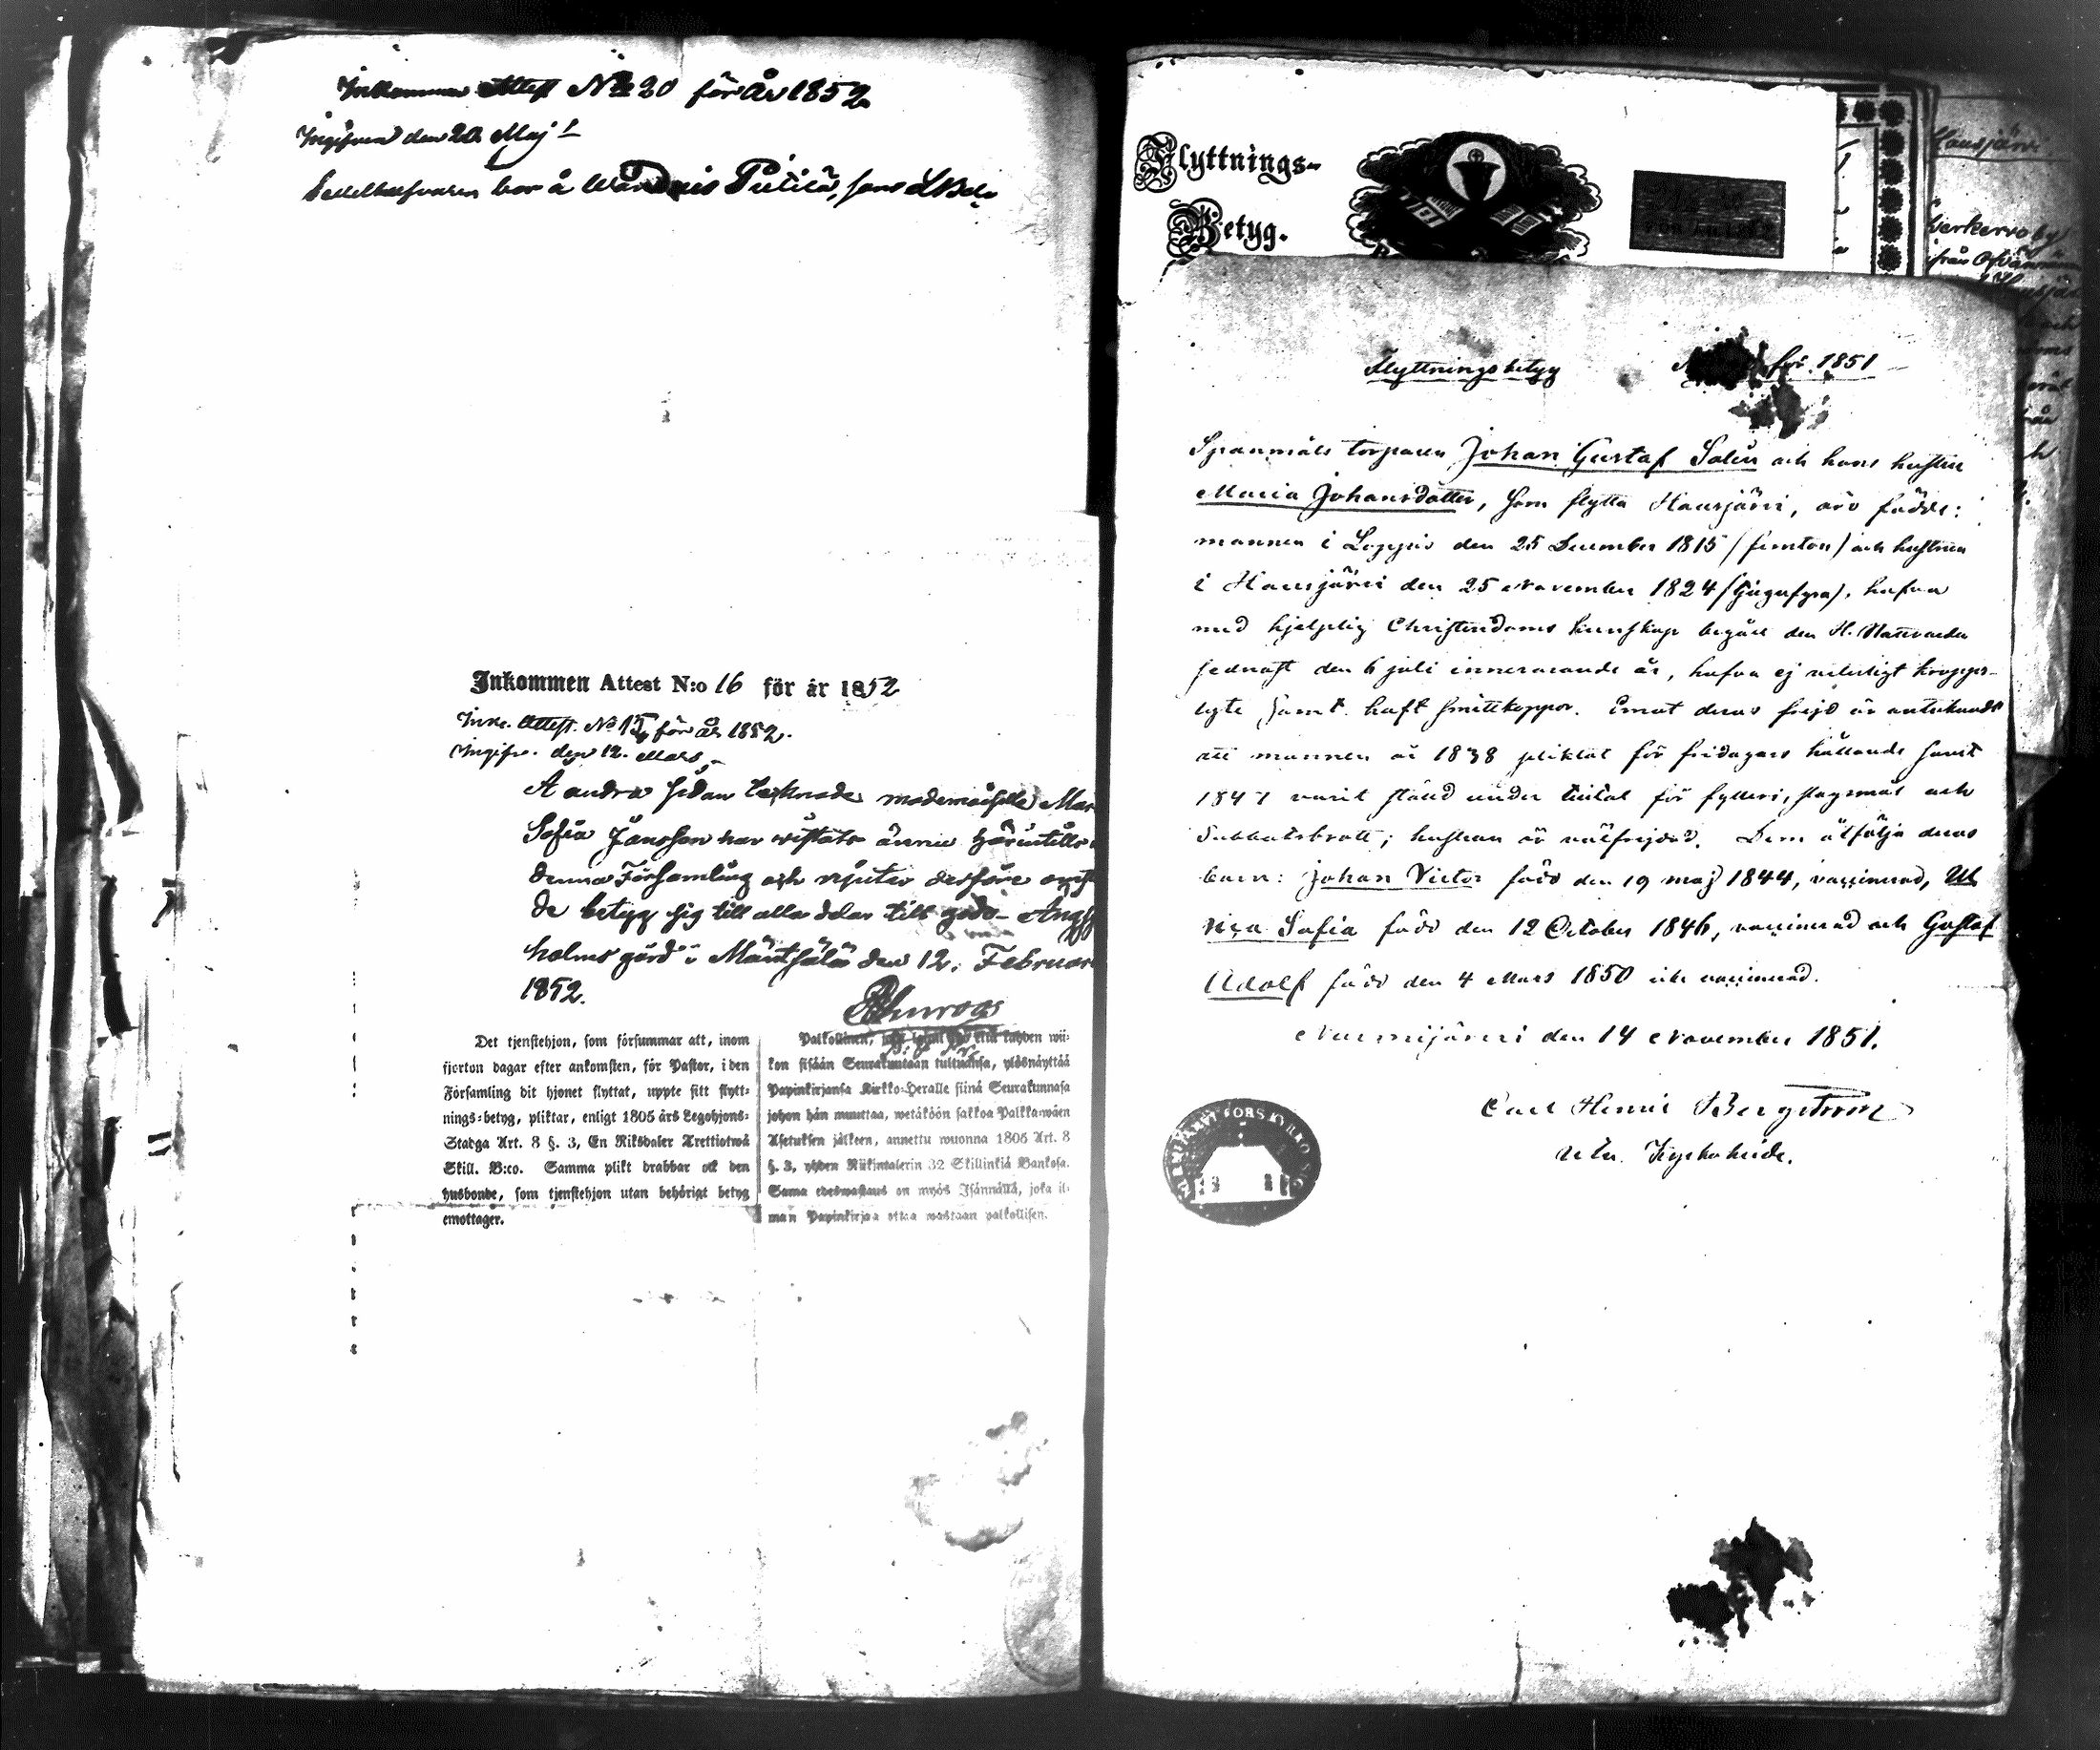 Inkommen Attest No 20 för År 1852
Ingifven den 20 Maj
Sedelhafvaren bor å
Inkommen Attest N:o 16 för år 1852
Ink. Attest. No 15 för år 1852.
Ingifv. den 12. Mars
Å andra sidan tecknade mademoiselle Mar
Sofia Jansson har vistats ännu härintills i
denna Församling och njuter desföre
de betyg sig till alla delar till godo
holms gård i Mäntsälä den 12. Februari
1852.
Det tjenstehjon, som försummar att, inom
fjorton dagar efter ankomsten, för Pastor, i den
Församling dit hjonet flyttat, uppte sitt flytt-
nings-betyg, pliktar, enligt 1805 års Legohjons-
Stadga Art. 8 §. 3, En Riksdaler Trettiotwå
Skill. B:co. Samma plikt drabbar ock den
husbonde, som tjenstehjon utan behörigt betyg
emottager.
Palkollinen, joka kahden wii-
kon sisään Seurakuntaan tultuansa, ylösnäyttää
Papinkirjansa Kirkko-Heralle siinä Seurakunnasa
johon hän muuttaa, wetäköön sakkoa Palkkawäen
Asetuksen jälkeen, annettu wuonna 1805 Art. 8
§. 3, yhden Riikintalerin 32 Skillinkiä Bankosa.
Sama edeswastaus on myös Isännällä, joka il-
man Papinkirjaa ottaa wastaan palkollisen.
Flyttnings-
Betyg.
Hausjärvi
Flyttningsbetyg för 1851
Spanmåls torparen Johan Gustaf Salin och hans hustru
Maria Johansdotter, som flytta Hausjärvi, äro födde:
mannen i Loppis den 25 December 1815 (femton) och hustrun
i Hausjärvi den 25 November 1824 (tjugufyra), hafva
med hjelplig Christendoms kunskap begått den H. Nattvarden
sednast den 6 juli innevarande år, hafva ej vederligt kropps-
lyte samt haft smittkoppor. Emot deras frejd är antecknadt
att mannen år 1838 pliktat för fridagars hållande samt
1847 varit ställd under tilltal för fylleri, slagsmål och
Sabbatsbrott; hustrun är välfrejdad. Dem åtfölja deras
barn: Johan Victor född den 19 maj 1844, vaccinerad, Ul
rica Sofia född den 12 October 1846, vaccinerad och Gustaf
Adolf född den 4 Mars 1850 icke vaccinerad.
Nurmijärvi den 14 November 1851.
Carl Henric Bergström